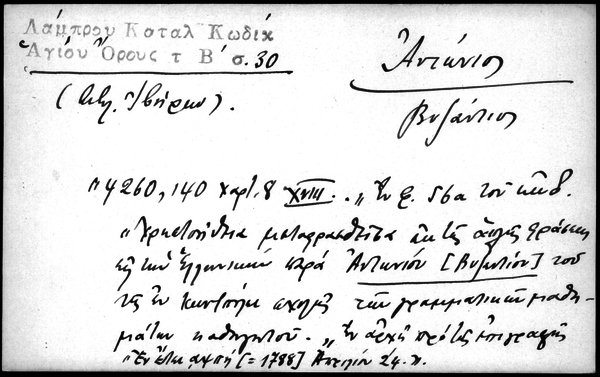 Λάμπρου Καταλ Κωδικ
Ἁγίου Ὄρους τ Β΄ σ. 30
Ἀντώνιος
(Βιβλ. Ἰβήρων).
Βυζάντιος
"4260, 140 χαρτ. 8 XVIII. „Ἐν φ. 56α τοῦ κώδ.
„Χρηστοήθεια μεταφρασθεῖσα ἐκ τῆς ἁπλῆς φράσεως
εἰς τὴν Ἑλληνικὴν παρὰ Ἀντωνίου [Βυζαντίου] τοῦ
τῆς ἐν Κων/πόλει σχολῆς τῶν γραμματικῶν μαθη-
μάτων καθηγητοῦ. „Ἐν ἀρχῇ πρὸ τῆς ἐπιγραφῆς
"Ἐν ἔτει αψπη [= 1788] Ἀπριλίου 24.